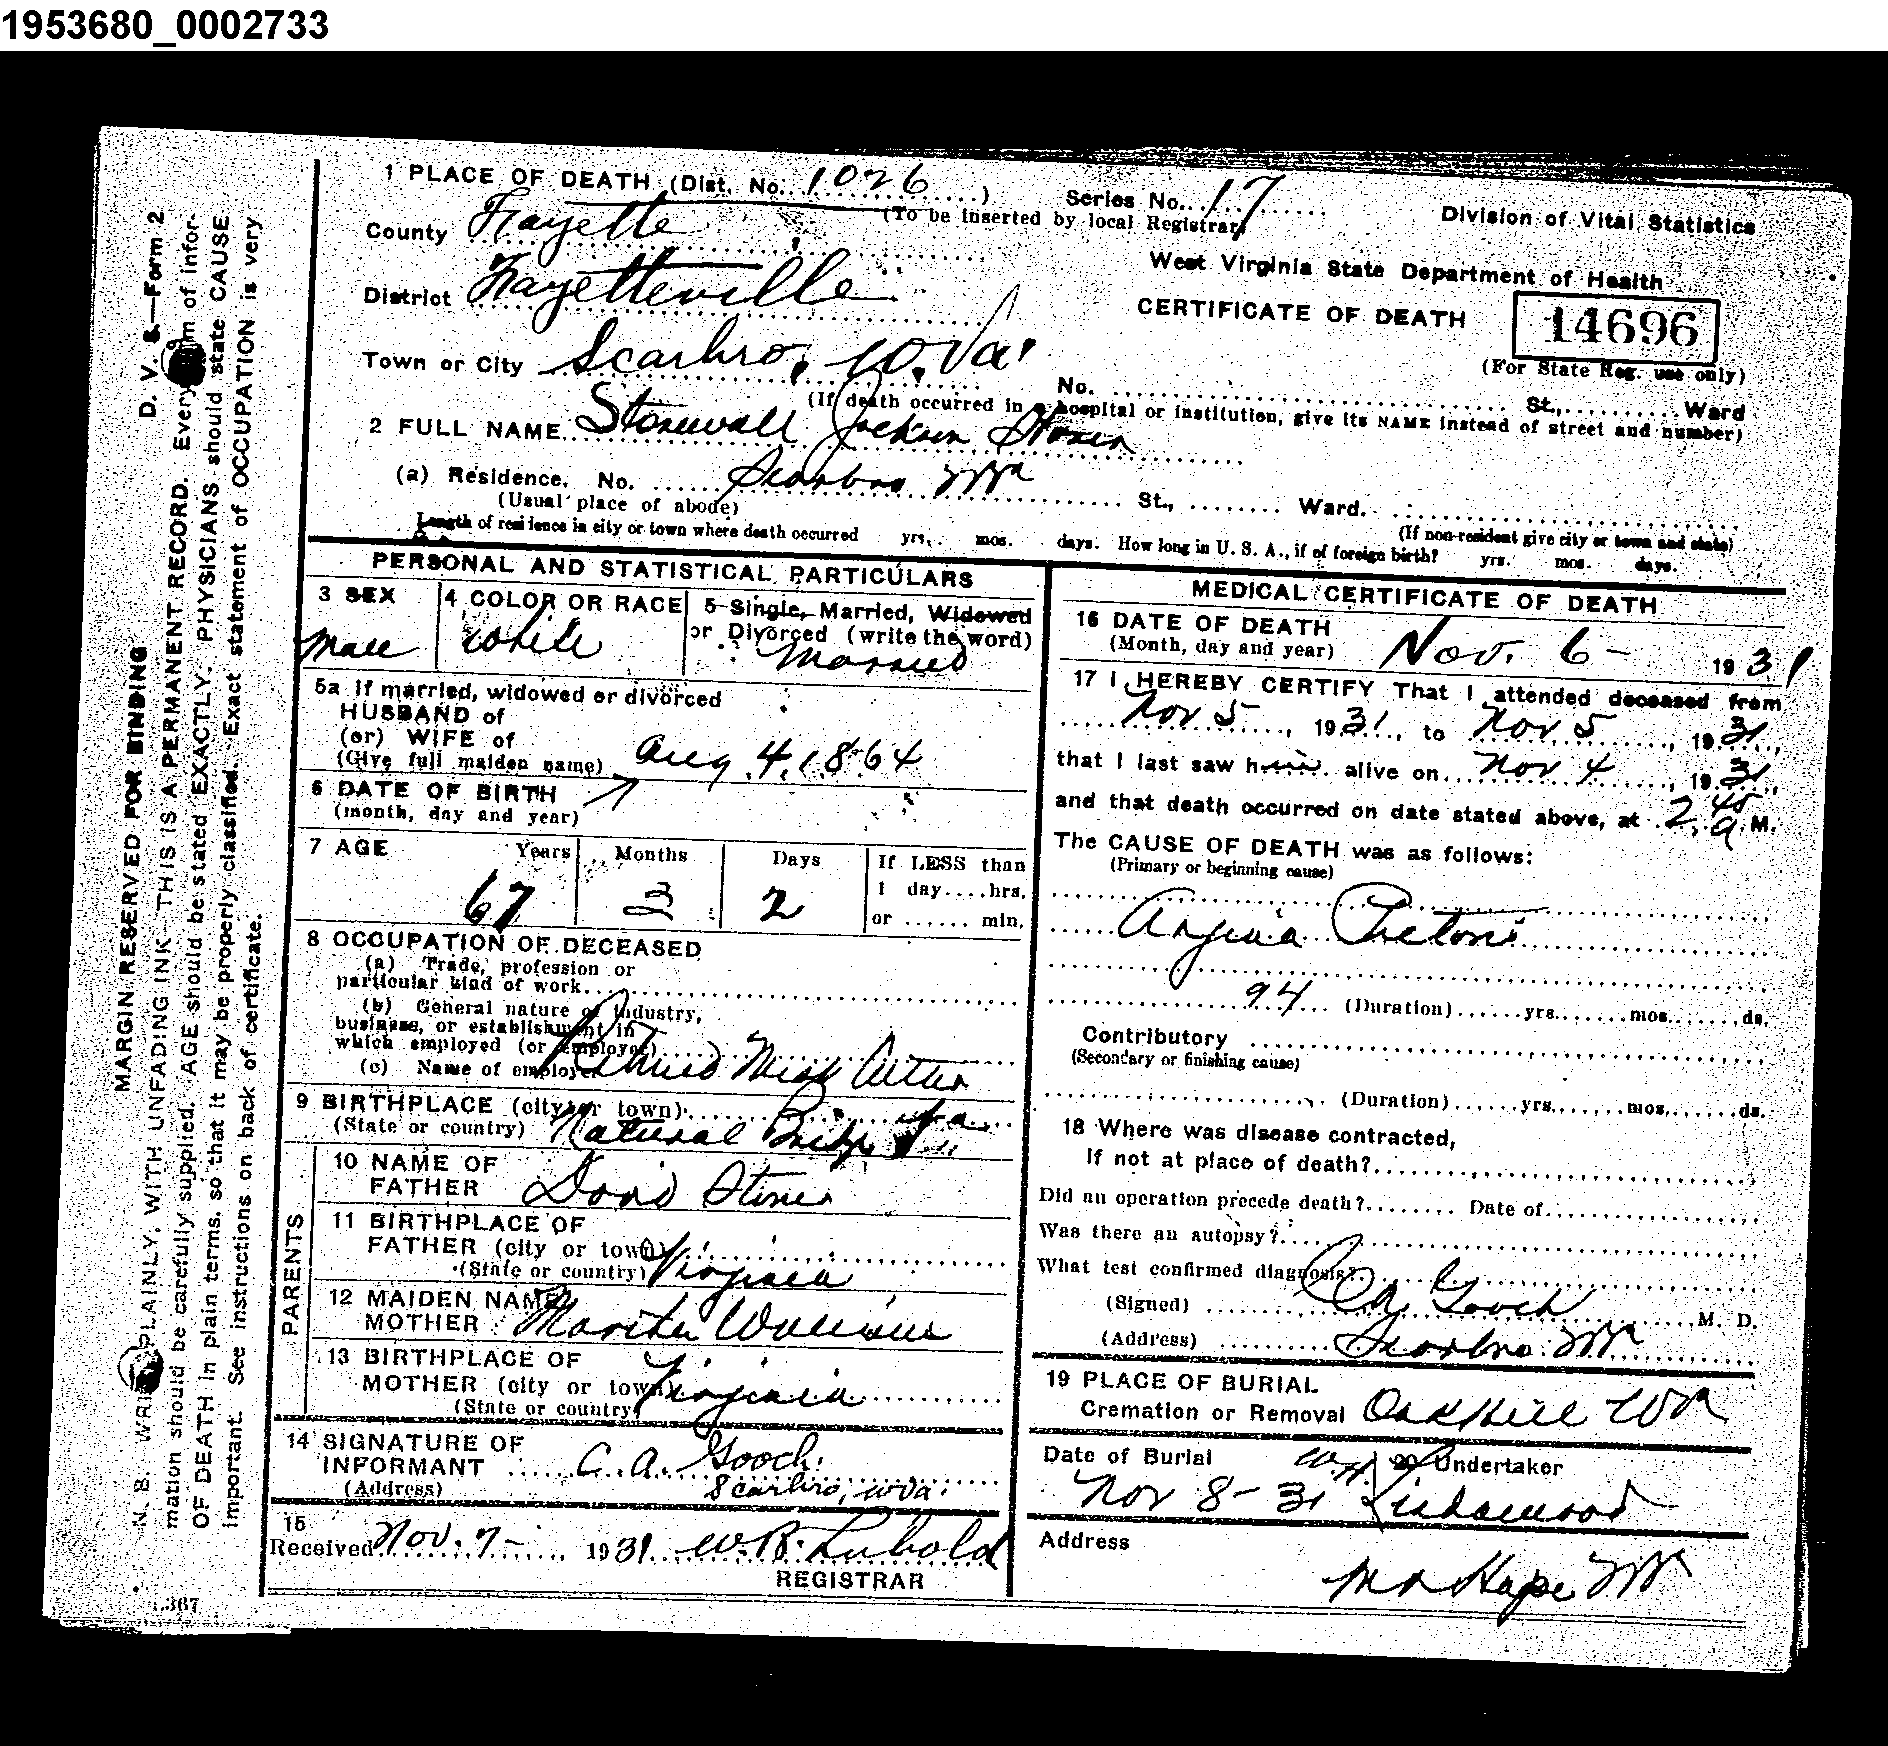 1953680_0002733
1 PLACE OF DEATH (Dist. No. 1026 ) Series No. 17
(To be inserted by local Registrar)
Division of Vital Statistics
County Fayette
West Virginia State Department of Health
District Fayetteville
CERTIFICATE OF DEATH
14696
(For State Reg. use only)
Town or City Scarbro, W. Va.
No. St., Ward
(If death occurred in a hospital or institution, give its NAME instead of street and number)
2 FULL NAME Stonewall Jackson Stoner
(a) Residence. No. Scarbro WVa St., Ward.
(Usual place of abode)
(If non-resident give city or town and state)
Length of residence in city or town where death occurred yrs. mos. days. How long in U. S. A., if of foreign birth? yrs. mos. days.
PERSONAL AND STATISTICAL PARTICULARS
3 SEX
Male
4 COLOR OR RACE
White
5 Single, Married, Widowed
or Divorced (write the word)
Married
5a If married, widowed or divorced
HUSBAND of
(or) WIFE of
(Give full maiden name)
Aug 4, 1864
6 DATE OF BIRTH
(month, day and year)
7 AGE Years Months Days If LESS than
1 day....hrs.
67 3 2
or ...... min.
8 OCCUPATION OF DECEASED
(a) Trade, profession or
particular kind of work
(b) General nature of industry,
business, or establishment in
which employed (or employer)
(c) Name of employer
Retired Meat Cutter
9 BIRTHPLACE (city or town)
(State or country) Natural Bridge Va
PARENTS
10 NAME OF
FATHER David Stoner
11 BIRTHPLACE OF
FATHER (city or town)
(State or country) Virginia
12 MAIDEN NAME
MOTHER Williams
13 BIRTHPLACE OF
MOTHER (city or town)
(State or country) Virginia
14 SIGNATURE OF
INFORMANT C. A. Gooch
(Address) Scarbro, W Va.
15
Received Nov. 7- 1931 W. R.
REGISTRAR
MEDICAL CERTIFICATE OF DEATH
16 DATE OF DEATH
(Month, day and year) Nov. 6- 1931
17 I HEREBY CERTIFY That I attended deceased from
Nov 5, 1931, to Nov 5, 1931,
that I last saw him alive on Nov 4, 1931,
and that death occurred on date stated above, at 2.45 a M.
The CAUSE OF DEATH was as follows:
(Primary or beginning cause)
Angina Pectoris
94 (Duration) yrs. mos. ds.
Contributory
(Secondary or finishing cause)
(Duration) yrs. mos. ds.
18 Where was disease contracted,
If not at place of death?
Did an operation precede death? Date of
Was there an autopsy?
What test confirmed diagnosis?
(Signed) C A Gooch M. D.
(Address) Scarbro WVa
19 PLACE OF BURIAL
Cremation or Removal Oak Hill WVa
Date of Burial
Nov 8-31
20 Undertaker
Address
Mt Hope WVa
D. V. S.—Form 2
MARGIN RESERVED FOR BINDING
N. B. WRITE PLAINLY, WITH UNFADING INK—THIS IS A PERMANENT RECORD. Every item of infor-
mation should be carefully supplied. AGE should be stated EXACTLY. PHYSICIANS should state CAUSE
OF DEATH in plain terms, so that it may be properly classified. Exact statement of OCCUPATION is very
important. See instructions on back of certificate.